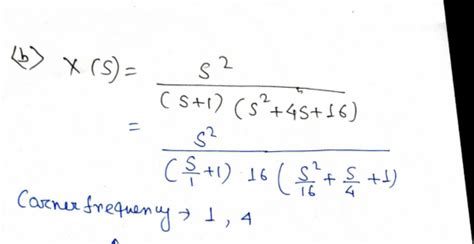 (b) X(S) = S² / ((S+1) (S²+4S+16))
= S² / ((S/1 +1) · 16 (S²/16 + S/4 +1))
Corner frequency → 1, 4